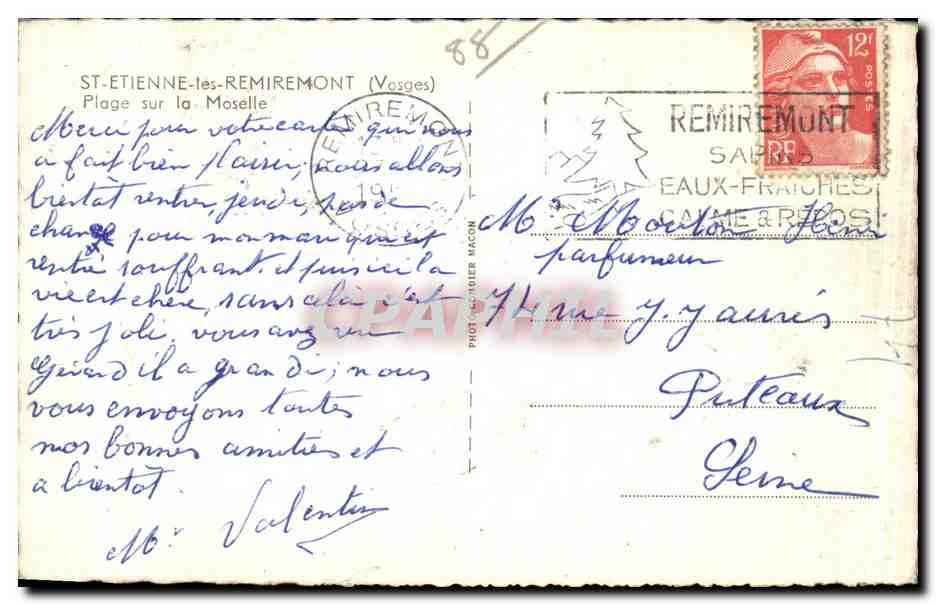 88
ST-ETIENNE-les-REMIREMONT (Vosges)
Plage sur la Moselle
Merci pour votre carte qui nous
a fait bien plaisir, nous allons
bientôt rentrer, jeudi, pas de
chance pour mon mari qui est
rentré souffrant. et puis ici la
vie est chère, sans cela c'est
très joli. vous avez vu
Gérard il a grandi, nous
vous envoyons toutes
nos bonnes amitiés et
a bientôt.
Mr Valentin
REMIREMONT
19
PHOTO COMBIER MACON
12f
POSTES
RF
REMIREMONT
SAPINS
EAUX-FRAICHES
CALME & REPOS
Mr Mouton Henri
parfumeur
74 rue J. Jaurés
Puteaux
Seine
CPARAMA